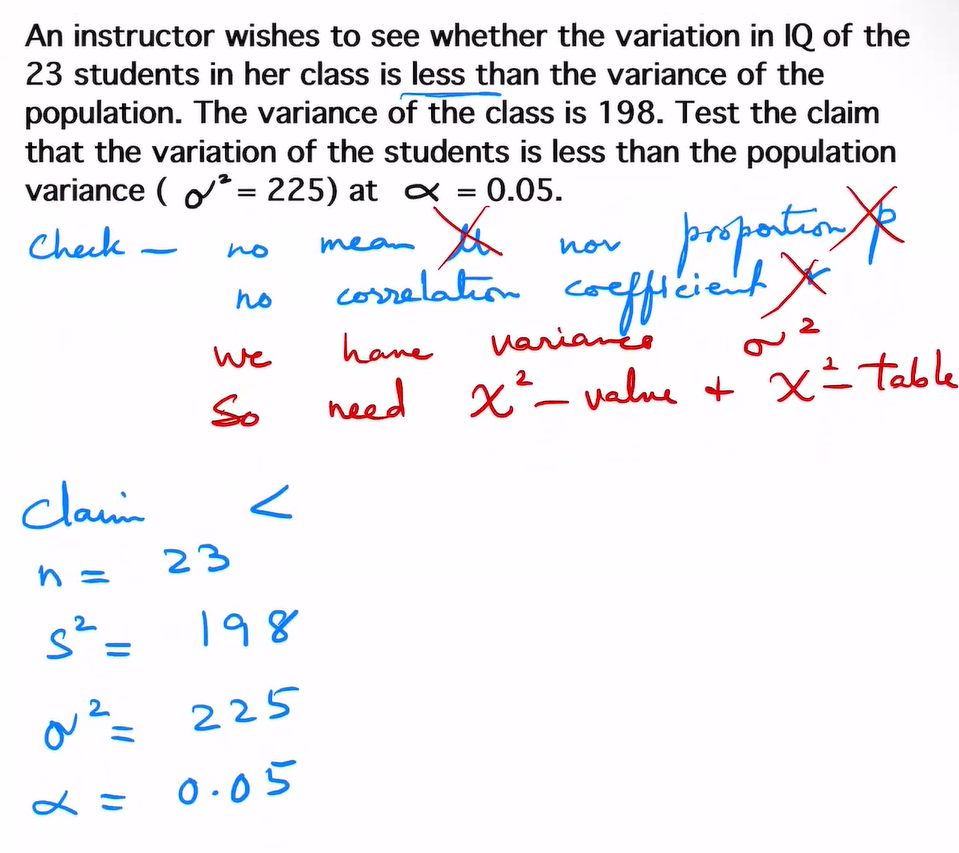 An instructor wishes to see whether the variation in IQ of the
23 students in her class is less than the variance of the
population. The variance of the class is 198. Test the claim
that the variation of the students is less than the population
variance ( σ² = 225) at α = 0.05.
Check – no mean μ nor proportion p
no correlation coefficient r
we have variance σ²
So need χ² – value + χ² – table
Claim <
n = 23
s² = 198
σ² = 225
α = 0.05